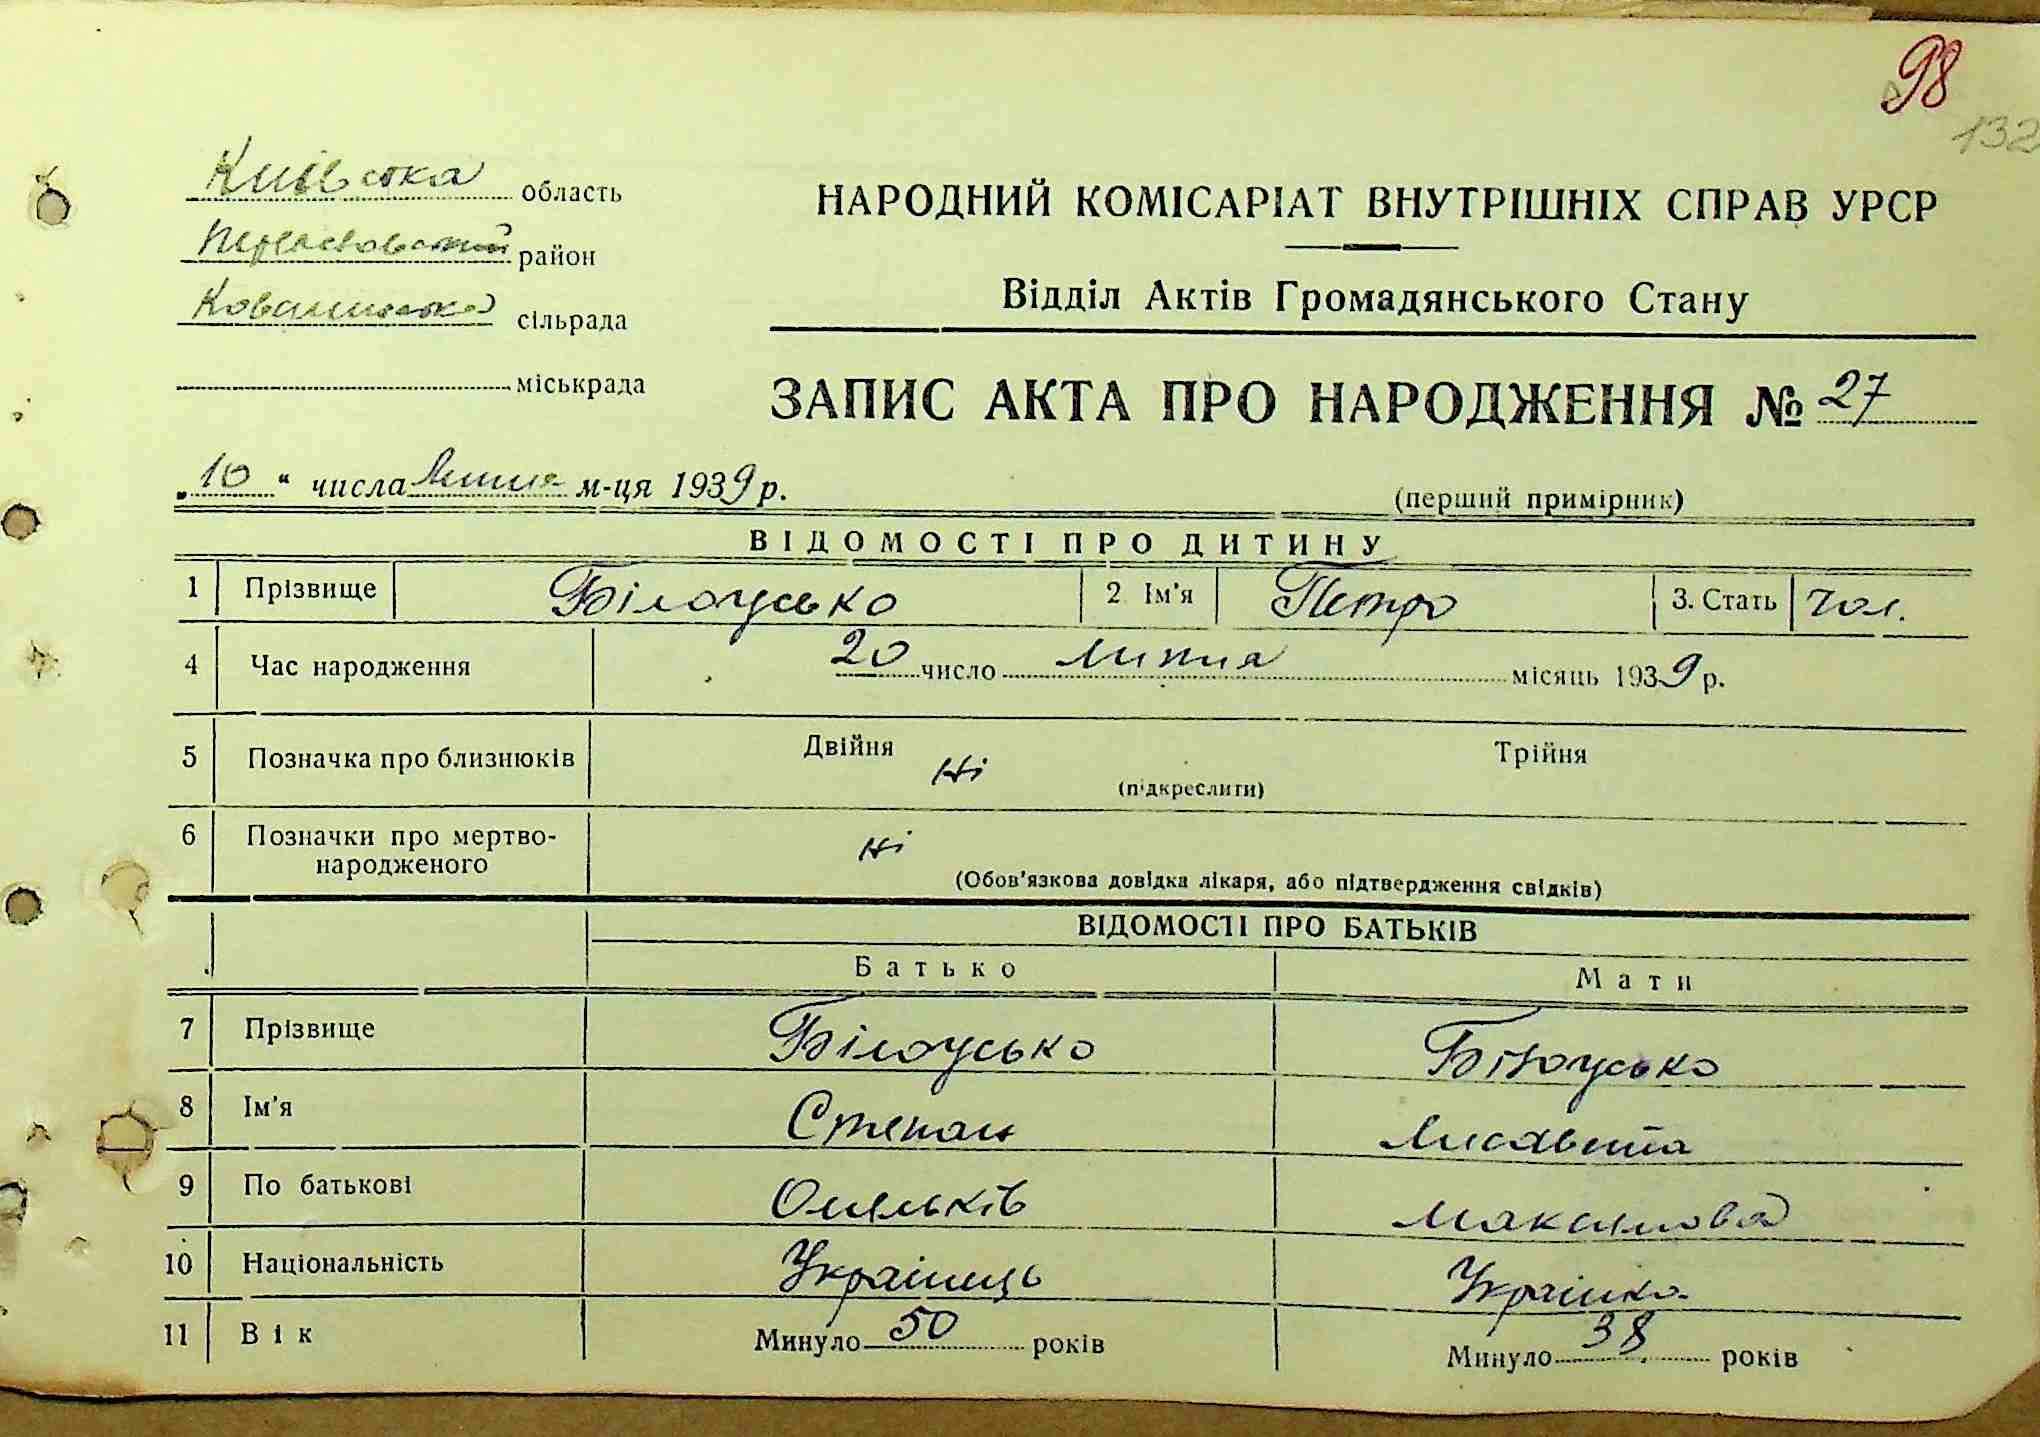 98
132
Київська область
НАРОДНИЙ КОМІСАРІАТ ВНУТРІШНІХ СПРАВ УРСР
район
Відділ Актів Громадянського Стану
сільрада
міськрада
ЗАПИС АКТА ПРО НАРОДЖЕННЯ № 27
„10“ числа Липня м-ця 1939 р.
(перший примірник)
ВІДОМОСТІ ПРО ДИТИНУ
1 Прізвище Білоусько 2. Ім'я Петро 3. Стать чол.
4 Час народження 20 число липня місяць 1939 р.
5 Позначка про близнюків Двійня ні Трійня
(підкреслити)
6 Позначки про мертво-
народженого ні
(Обов'язкова довідка лікаря, або підтвердження свідків)
ВІДОМОСТІ ПРО БАТЬКІВ
Батько Мати
7 Прізвище Білоусько Білоусько
8 Ім'я Степан Лисавета
9 По батькові Омельків Максимова
10 Національність Українець Українка
11 Вік Минуло 50 років Минуло 38 років